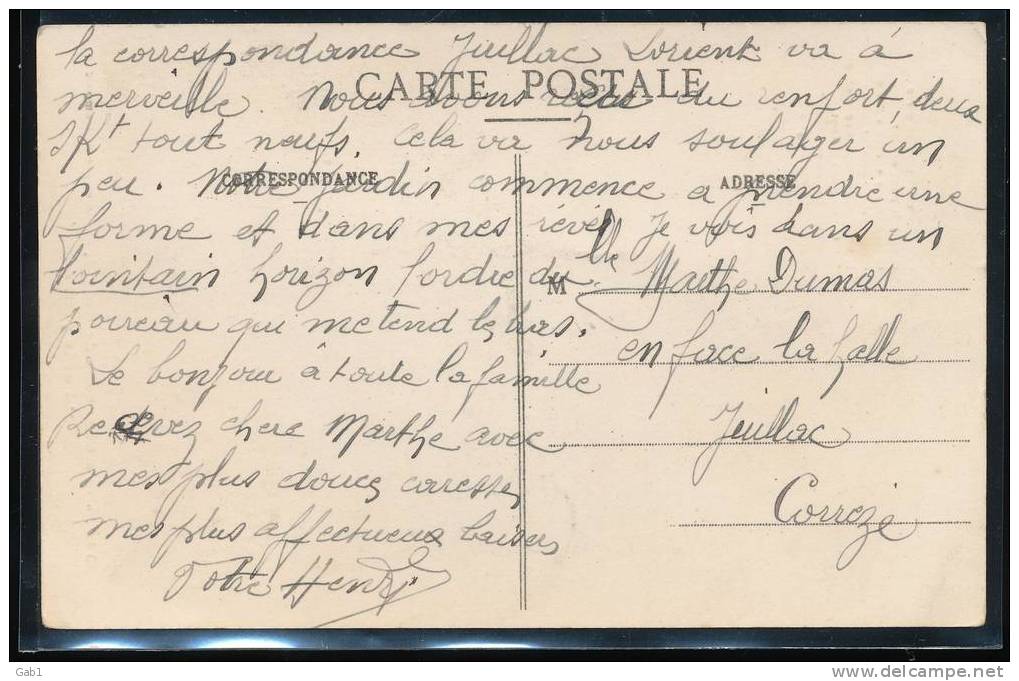 la correspondance Juillac Lorient va à
CARTE POSTALE
merveille. Nous avons reçu du renfort, deux
tout neufs. Cela va nous soulager un
CORRESPONDANCE
ADRESSE
peu. Notre jardin commence a prendre une
forme et dans mes rêves je vois dans un
lointain horizon l'ordre du
poireau qui me tend les bras.
Le bonjour à toute la famille
Recevez chere Marthe avec
mes plus douces caresses
mes plus affectueux baisers
Votre Henri
M lle Marthe Dumas
en face la halle
Juillac
Corrèze
Gab1
www.delcampe.net